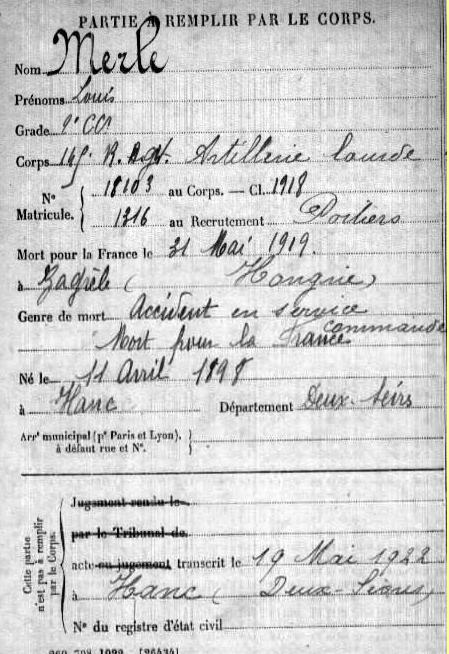 PARTIE À REMPLIR PAR LE CORPS.
Nom Merle
Prénoms Louis
Grade 2e CC
Corps 145e R. Artillerie lourde
No Matricule. 18103 au Corps. — Cl. 1918
1316 au Recrutement Poitiers
Mort pour la France le 31 Mai 1919.
à Zagrèb (Hongrie)
Genre de mort Accident en service
commandé
Mort pour la France
Né le 11 Avril 1898
à Hanc Département Deux-Sèvres
Arrt municipal (pr Paris et Lyon), à défaut rue et No.
Cette partie n'est pas à remplir par le Corps.
Jugement rendu le
par le Tribunal de
acte ou jugement transcrit le 19 Mai 1922
à Hanc (Deux-Sèvres)
No du registre d'état civil